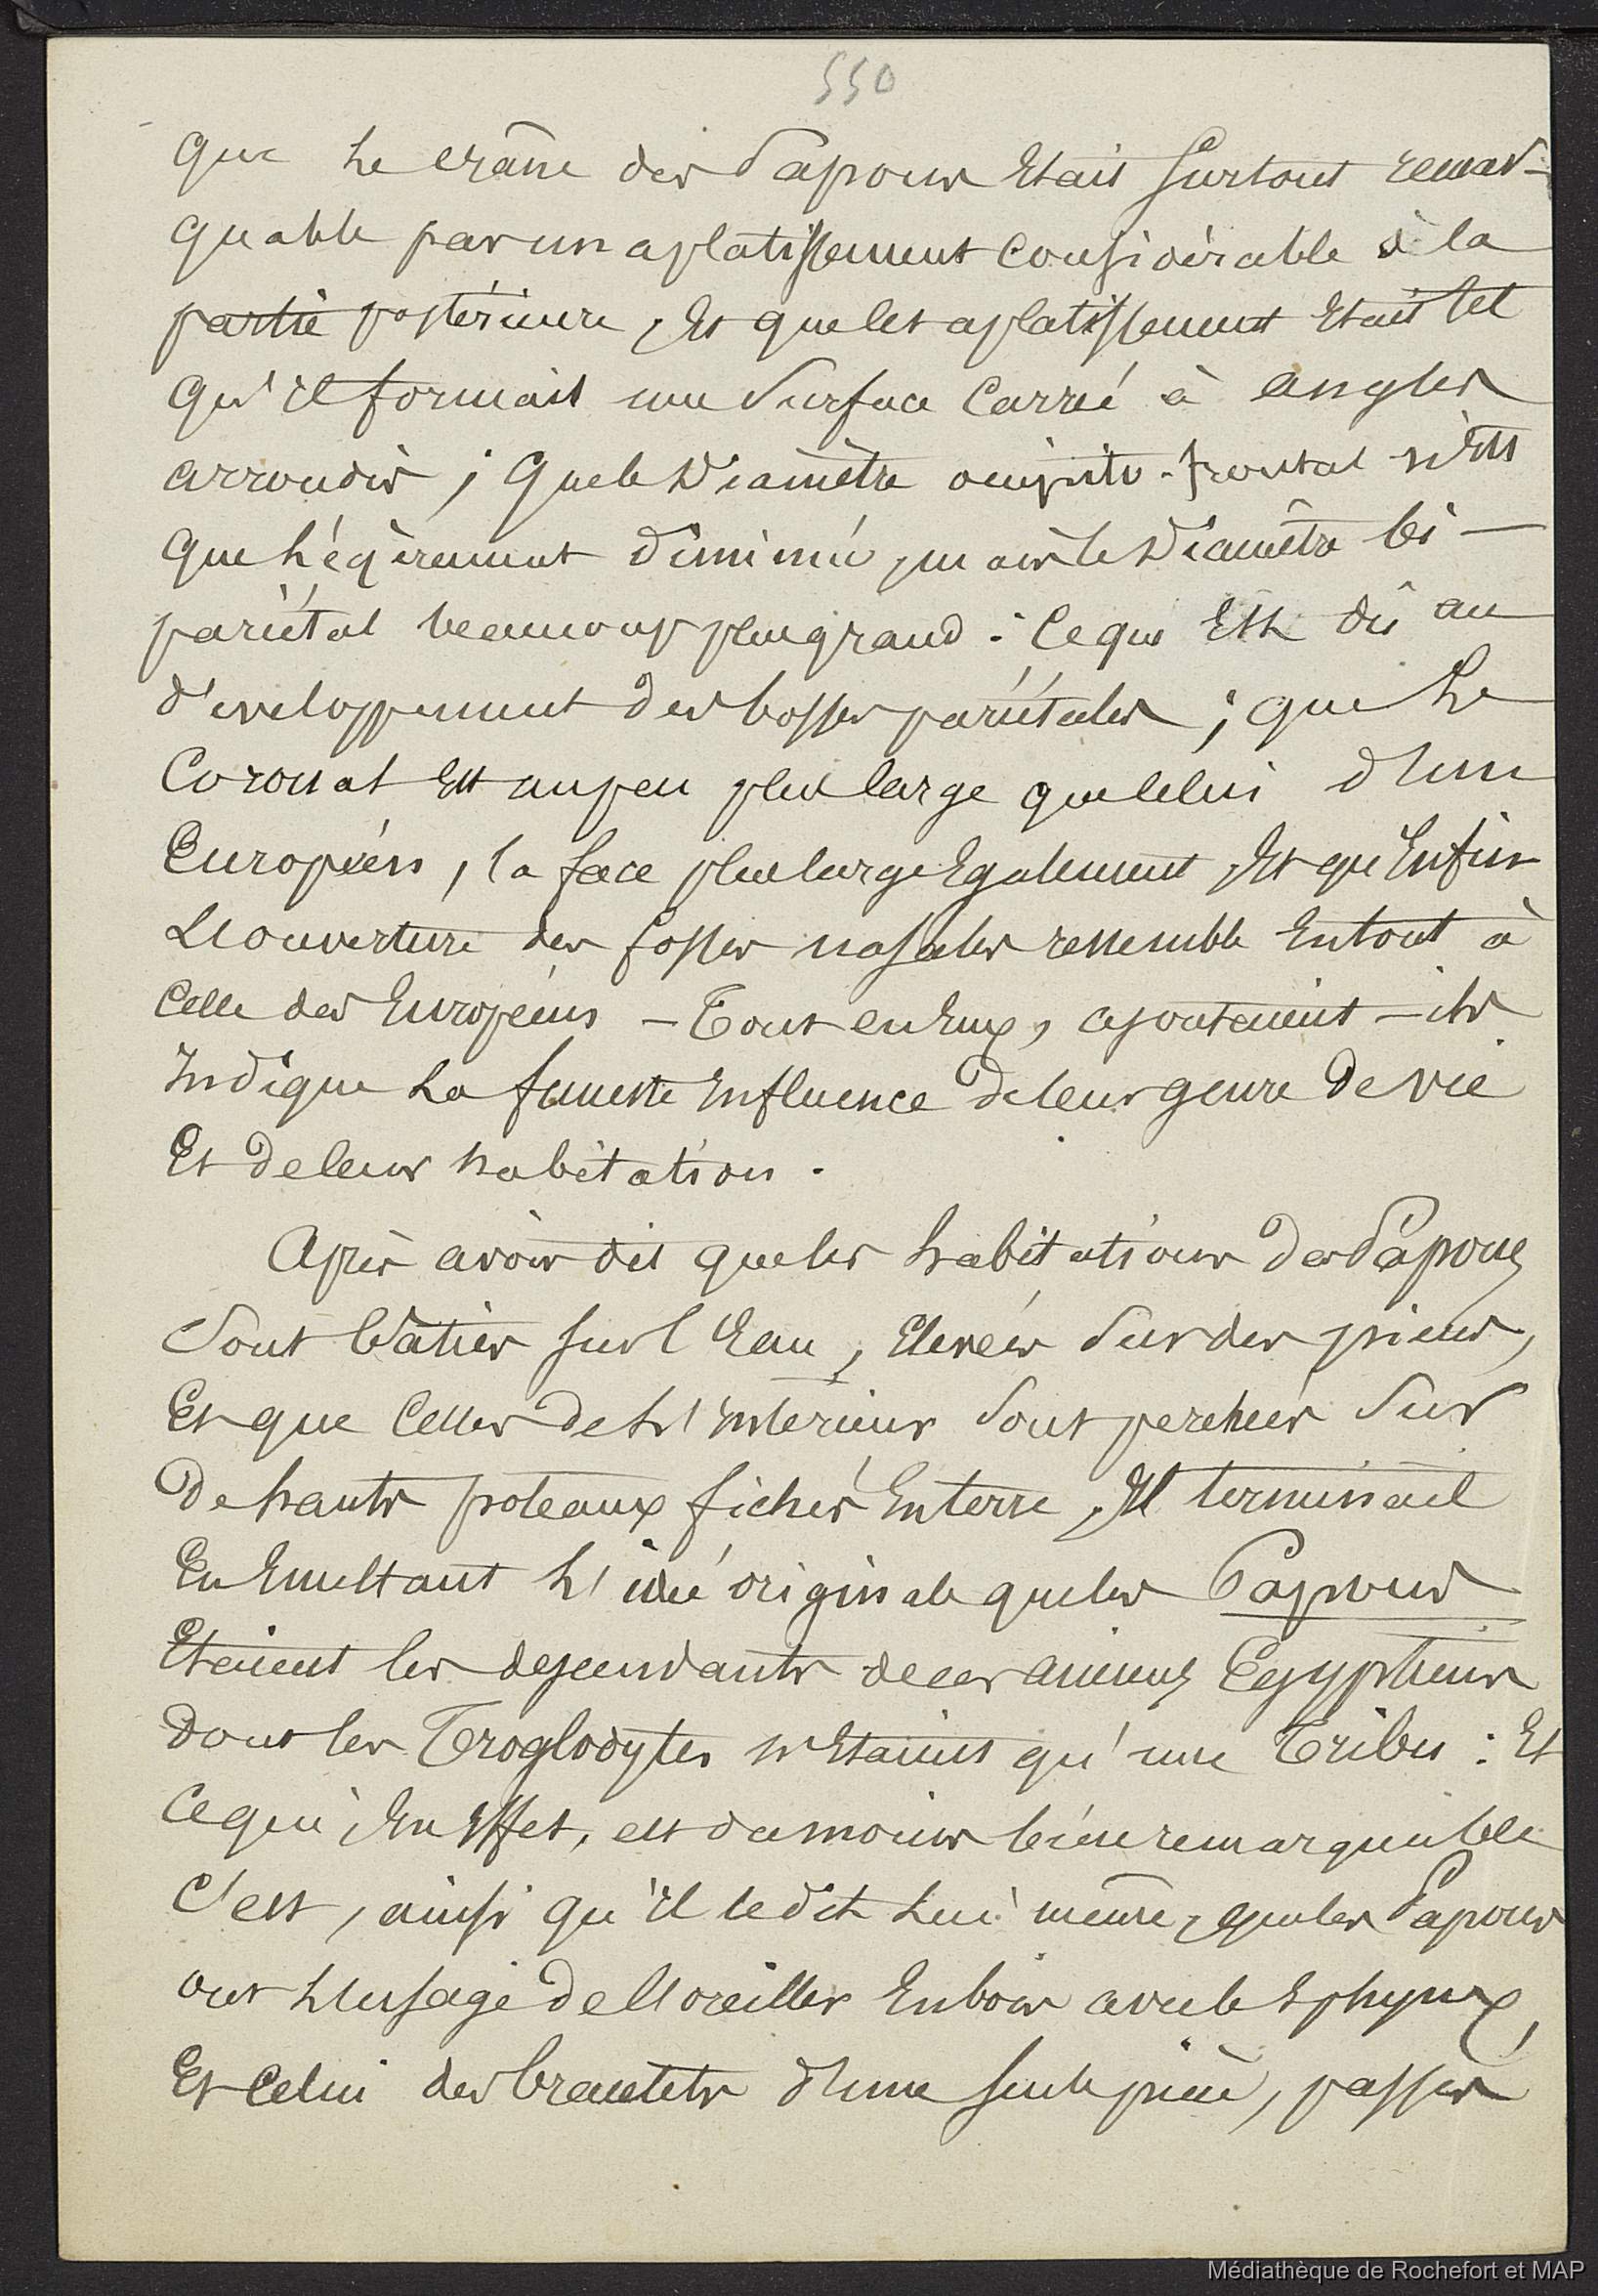 550
que le crâne des Papous était surtout remar-
quable par un aplatissement considérable à la
partie postérieure, et que cet aplatissement était tel
qu'il formait une surface carrée à angles
arrondis ; que le diamètre occipito-frontal n'est
que légèrement diminué, mais le diamètre bi-
pariétal beaucoup plus grand : ce qui est dû au
développement des bosses pariétales ; que le
Coronal est un peu plus large que celui d'un
Européen, la face plus large également, et qu'enfin
L'ouverture des fosses nasales ressemble en tout à
celle des Européens - Tout en eux, ajoutaient-ils
Indique la funeste influence de leur genre de vie
Et de leur habitation.
Après avoir dit que les habitations des Papous
Sont bâties sur l'eau, élevées sur des pieux,
Et que celles de l'intérieur sont perchées sur
De hauts poteaux fichés en terre, Il terminait
En émettant l'idée originale que les Papous
Etaient les descendants de ces anciens Egyptiens
Dont les Troglodytes n'étaient qu'une Tribu : Et
Ce qui, en effet, est du moins bien remarquable
C'est, ainsi qu'il le dit lui même, que les Papous
ont l'usage de l'oreiller en bois avec le sphynx,
Et celui des bracelets d'une seule pièce, passés
Médiathèque de Rochefort et MAP